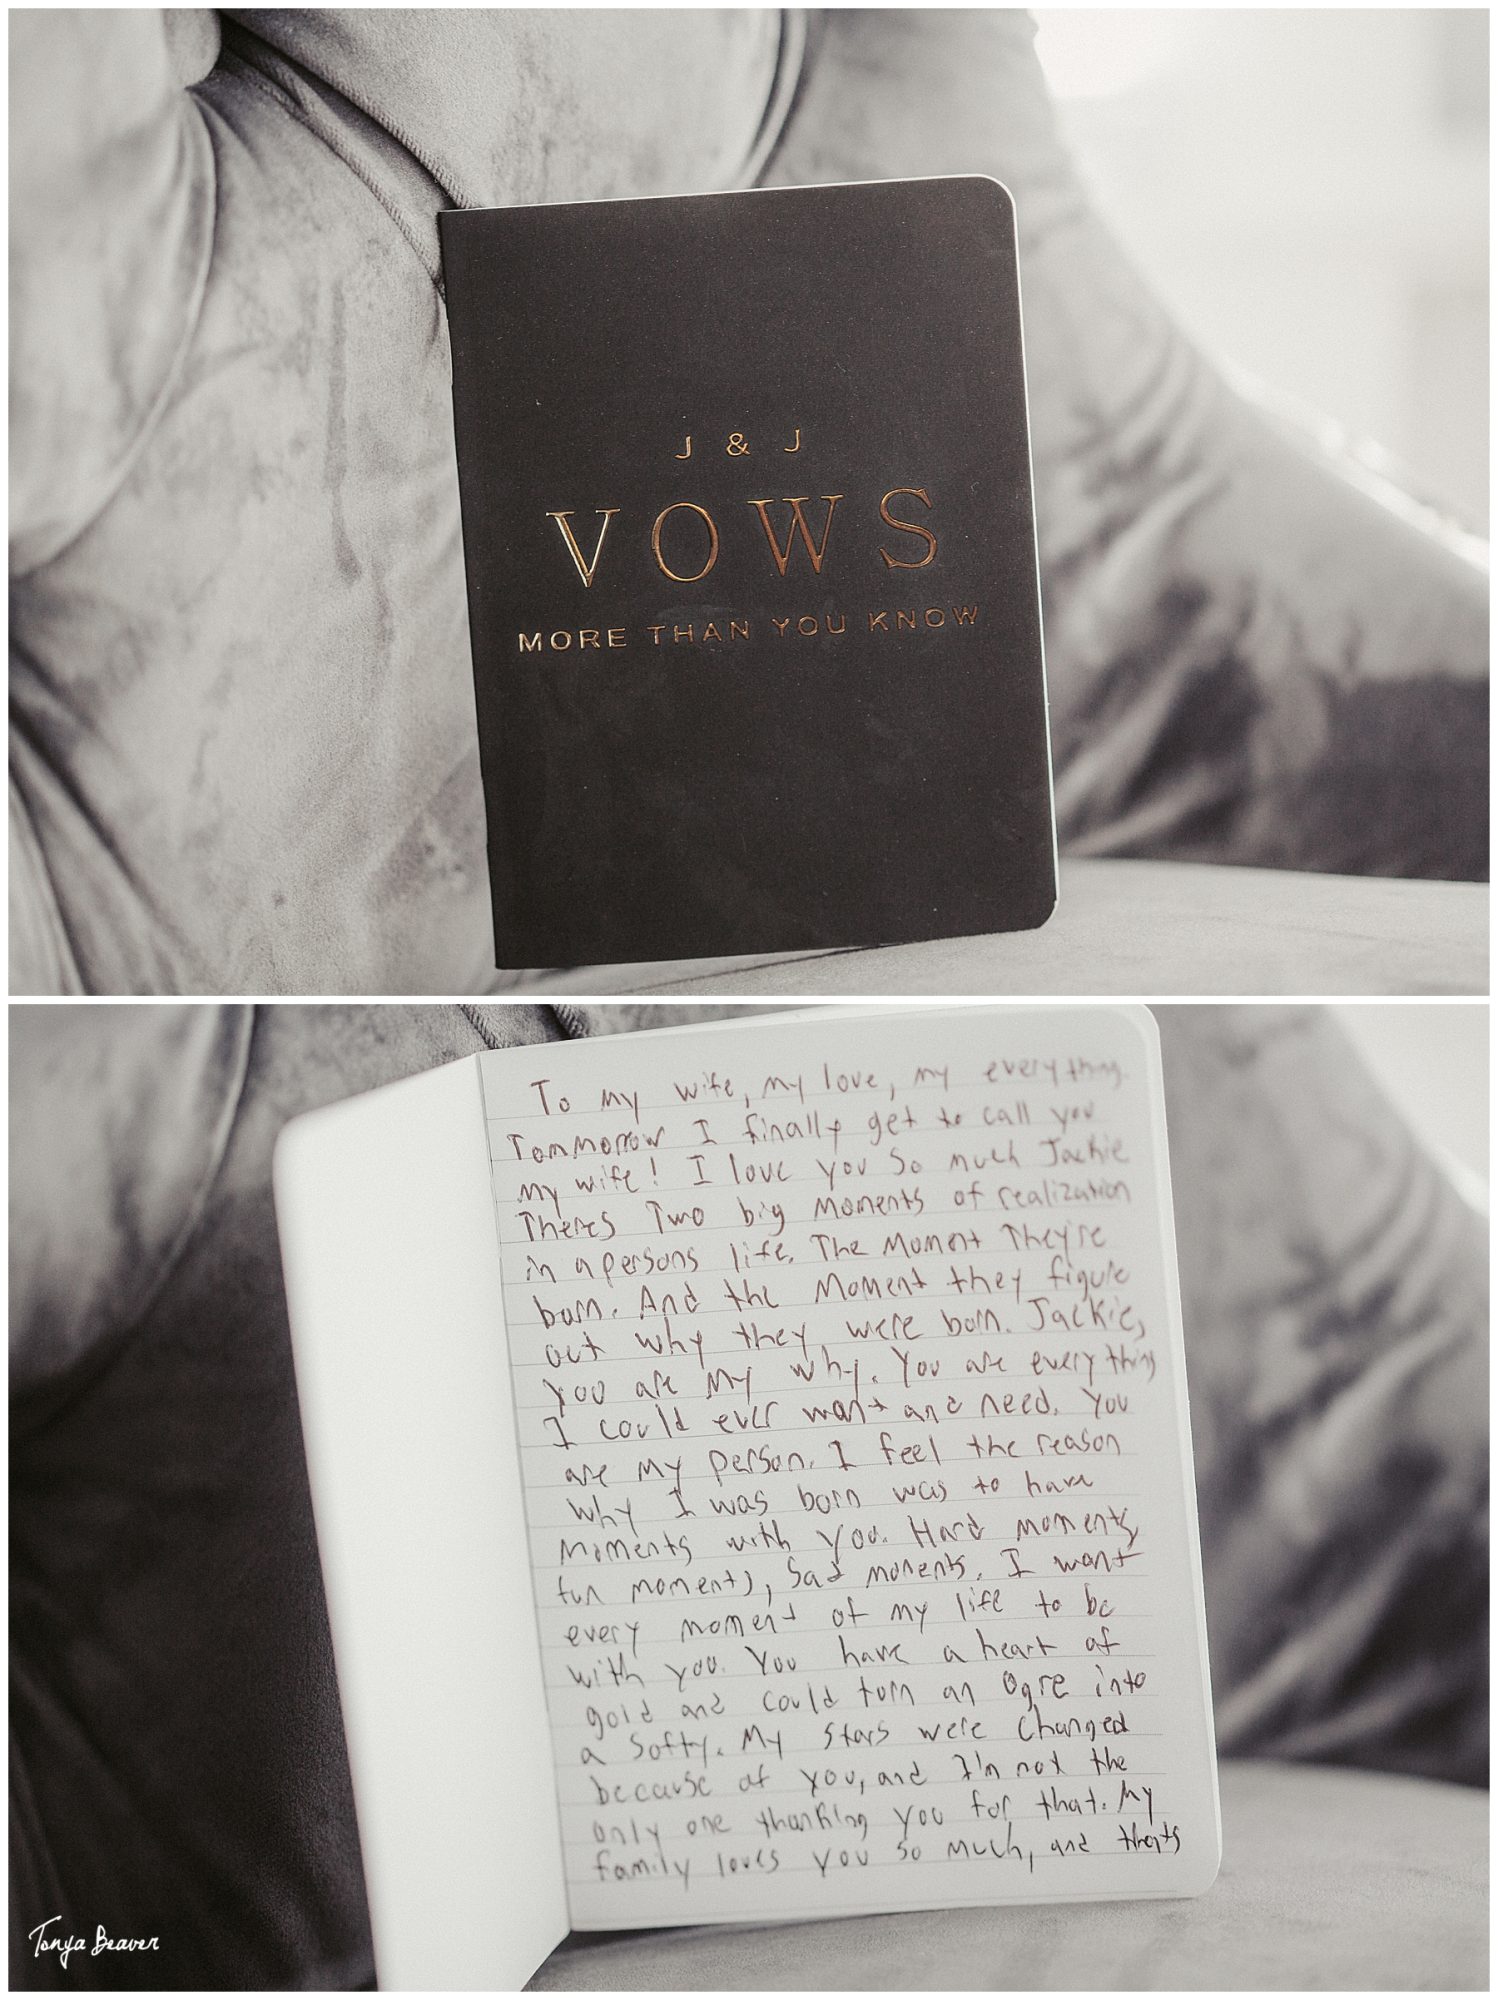 J & J
VOWS
MORE THAN YOU KNOW
To my wife, my love, my everything.
Tommorrow I finally get to call you
my wife! I love you so much Jackie
Theres Two big moments of realization
in a persons life. The moment They're
born. And the moment they figure
out why they were born. Jackie,
you are my why. You are everything
I could ever want and need. You
are my person. I feel the reason
why I was born was to have
moments with you. Hard moments,
fun moments, Sad moments. I want
every moment of my life to be
with you. You have a heart of
gold and could turn an Ogre into
a Softy. My stars were changed
because of you, and I'm not the
only one thanking you for that. My
family loves you so much, and thats
Tonya Beaver